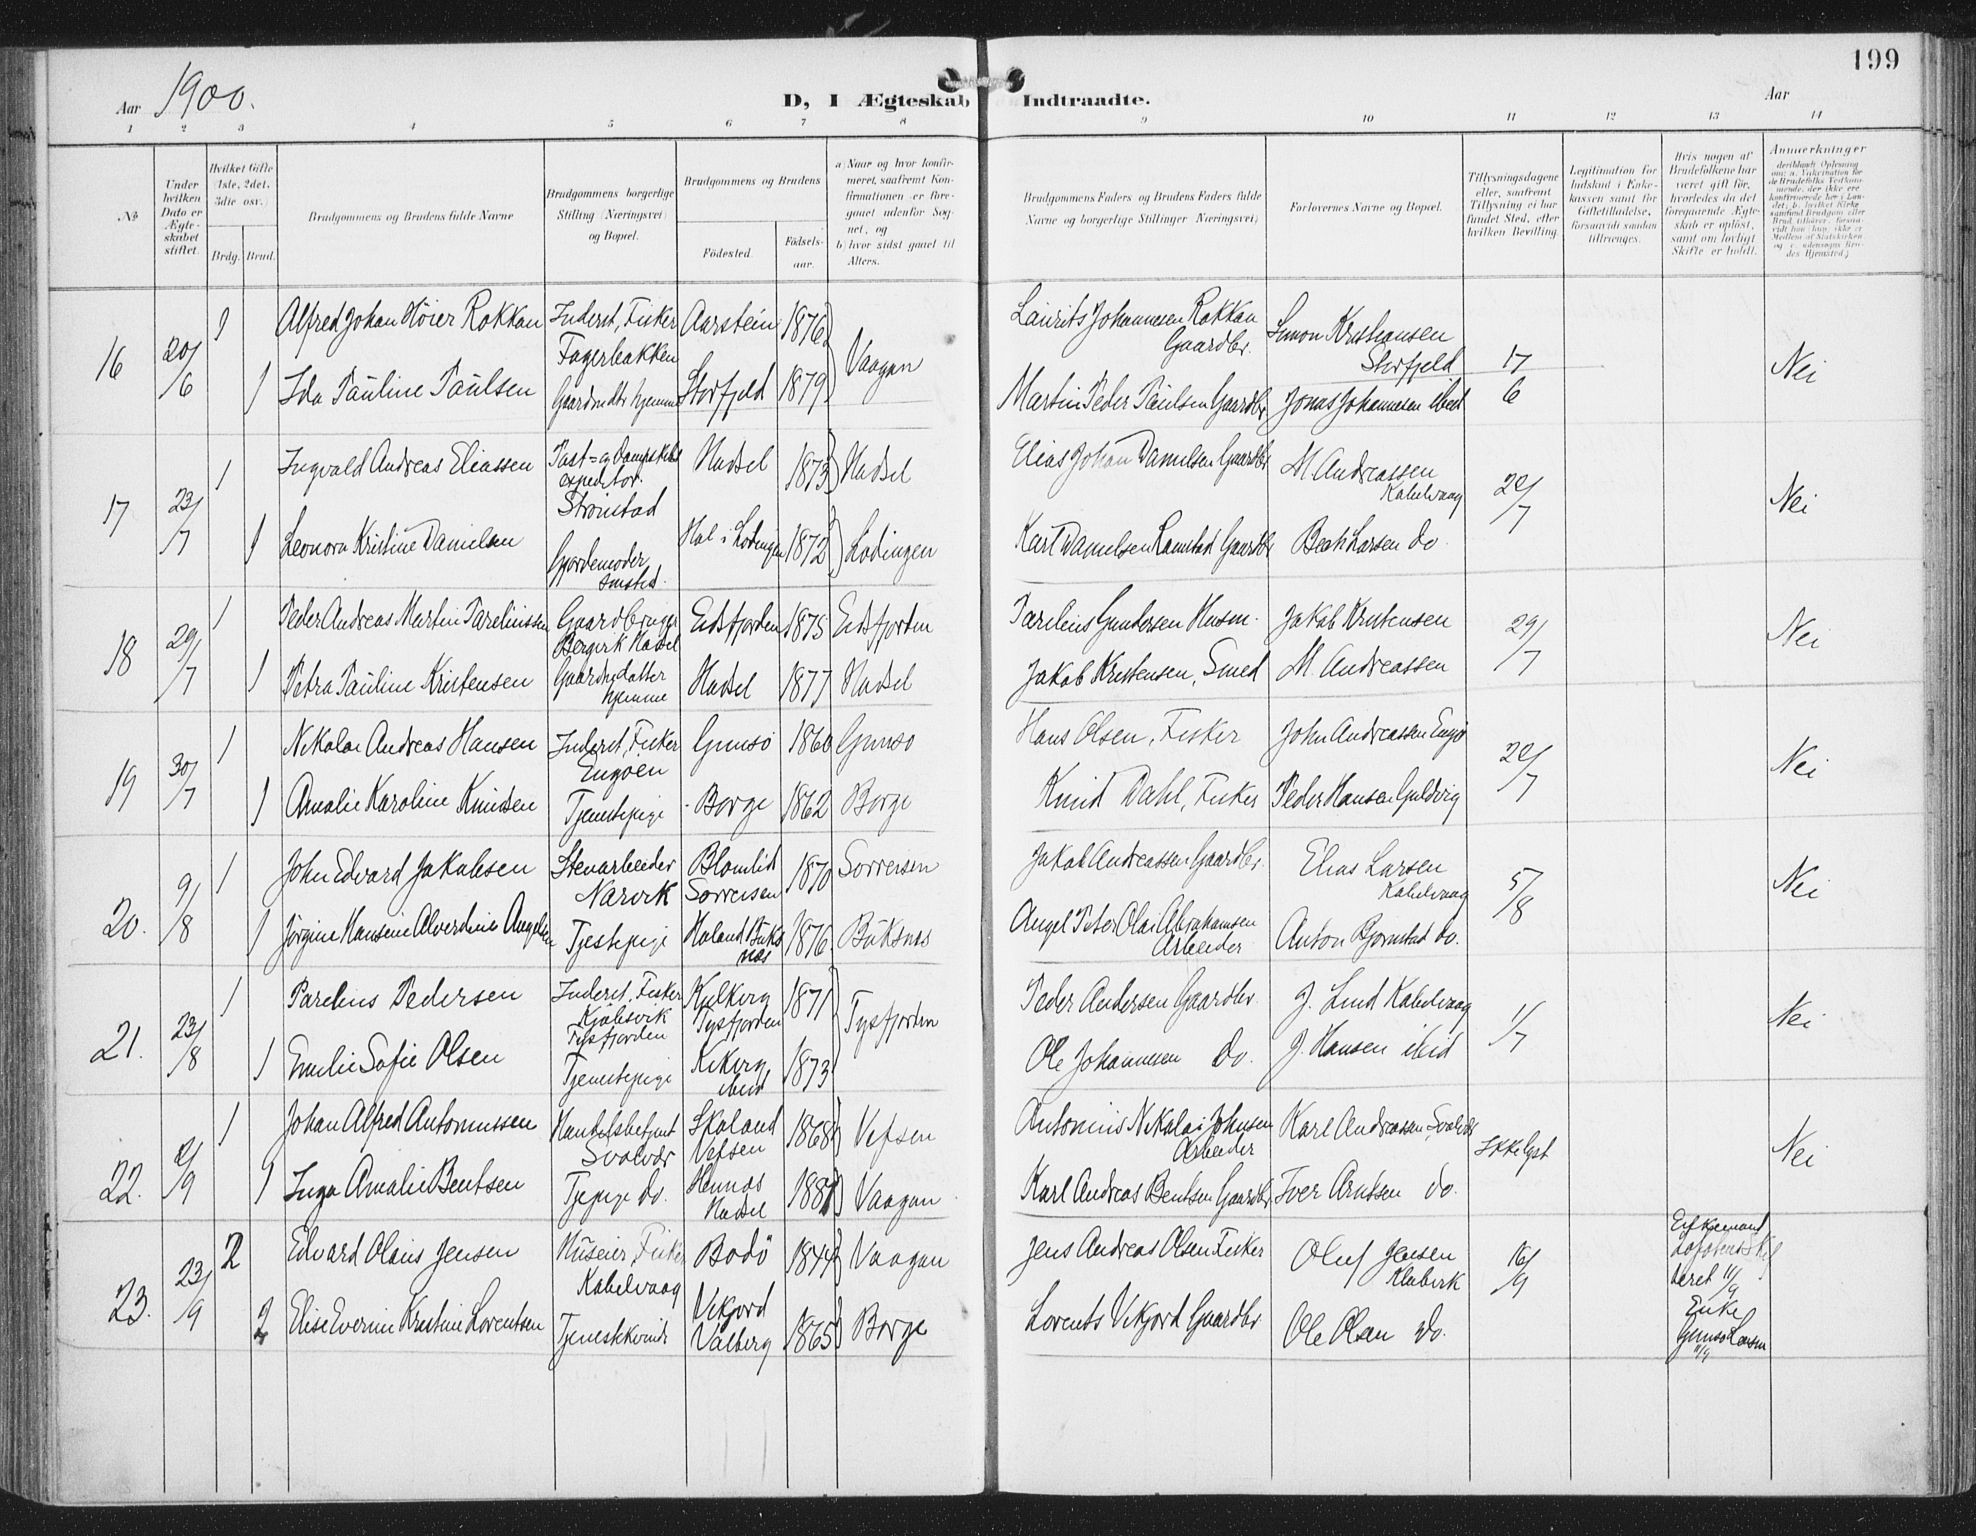 199
Aar 1900.
D, I Ægteskab Indtraadte.
Aar
1 2 3 4 5 6 7 8 9 10 11 12 13 14
№
Under hvilken Dato er Ægteskabet stiftet.
Hvilket Gifte (1ste, 2det, 3die osv.)
Brdg. Brud.
Brudgommens og Brudens fulde Navne
Brudgommens borgerlige Stilling (Næringsvei) og Bopæl.
Brudgommens og Brudens
Fødested.
Fødselsaar.
a) Naar og hvor konfirmeret, saafremt Konfirmationen er foregaaet udenfor Sognet, og
b) hvor sidst gaaet til Alters.
Brudgommens Faders og Brudens Faders fulde Navne og borgerlige Stillinger (Næringsvei)
Forlovernes Navne og Bopæl.
Tillysningsdagene eller, saafremt Tillysning ei har fundet Sted, efter hvilken Bevilling
Legitimation for Indskud i Enkekassen samt for Giftetilladelse, forsaavidt saadan tiltrænges.
Hvis nogen af Brudefolkene har været gift før, hvorledes da det foregaaende Ægteskab er opløst, samt om lovligt Skifte er holdt.
Anmerkninger
16 20/6 1 Alfred Johan Höier Rokkan Inderst, Fisker Fagerbakken Aarstein 1876 Vaagan Laurits Johannesen Rokkan Gaardbr. Simon Kristiansen Storfjeld 17/6 Nei
1 Ida Pauline Paulsen Gaardmdtr hjemme Storfjeld 1879 Martin Peder Paulsen Gaardbr Jonas Johannesen ibid
17 23/7 1 Ingvald Andreas Eliassen Post- og Dampskibsexpeditör Strönstad Hadsel 1873 Hadsel Elias Johan Danielsen Gaardbr M Andreassen Kabelvaag 22/7 Nei
1 Leonora Kristine Danielsen Gjordemoder smsted. Hol i Lödingen 1872 Lodingen Karl Danielsen Gaardbr Larsen do.
18 29/7 1 Peder Andreas Martin Parelinssen Gaardbruger Hadsel Eidsfjorden 1875 Eidsfjorden Parelius Gundersen Husm. Jakob Kristensen 29/7 Nei
1 Petra Pauline Kristensen Gaardbrdatter hjemme Hadsel 1877 Hadsel Jakob Kristensen, Smed M. Andreassen
19 30/7 1 Nikolai Andreas Hansen Inderst, Fisker Engöen Gimsö 1860 Gimsö Hans Olsen, Fisker John Andreassen Engö 22/7 Nei
1 Amalie Karoline Knudsen Tjenestepige Borge 1862 Borge Knud Dahl, Fisker Peder Hansen Guldvig
20. 9/8 1 John Edvard Jakobsen Stenarbeider Narvik Blomlid Sorreisen 1870 Sorreisen Jakob Andreassen Gaardbr. Elias Larsen Kabelvaag 5/8 Nei
1 Jörgine Hansine Alverdine Angelsen Tjestepige Holand Buksnæs 1876 Buksnæs Angel Peter Olai Abrahamsen Arbeider Anton Bjornstad do.
21. 23/8 1 Parelius Pedersen Inderst, Fisker Kjöbsvik Tysfjorden Tysfjorden 1871 Tysfjorden Peder Andersen Gaardbr. J. Lind Kabelvaag 1/7 Nei
1 Emilie Sofie Olsen Tjenestepige ibid 1873 Ole Johannesen do. J. Hansen ibid
22. 2/9 1 Johan Alfred Antoniussen Handelsbetjent Svolvær Skoland Vefsen 1868 Vefsen Antonius Nikolai Johnsen Arbeider Karl Andreasen Svolvær Ikke lyst Nei
1 Inga Amalie Bentsen Tjepige do. Hennæs Hadsel 1881 Vaagan Karl Andreas Bentsen Gaardbr Iver Arntsen do.
23. 23/9 2 Edvard Olaus Jensen Huseier Fisker Kabelvaag Bodö 1844 Vaagan Jens Andreas Olsen Fisker Oluf Jensen 16/9 Enkemand
2 Elise Evernie Kristine Lorentsen Tjenestekvinde Vikjord Valberg 1865 Borge Lorents Vikjord Gaardbr Ole Olsen do. Enke